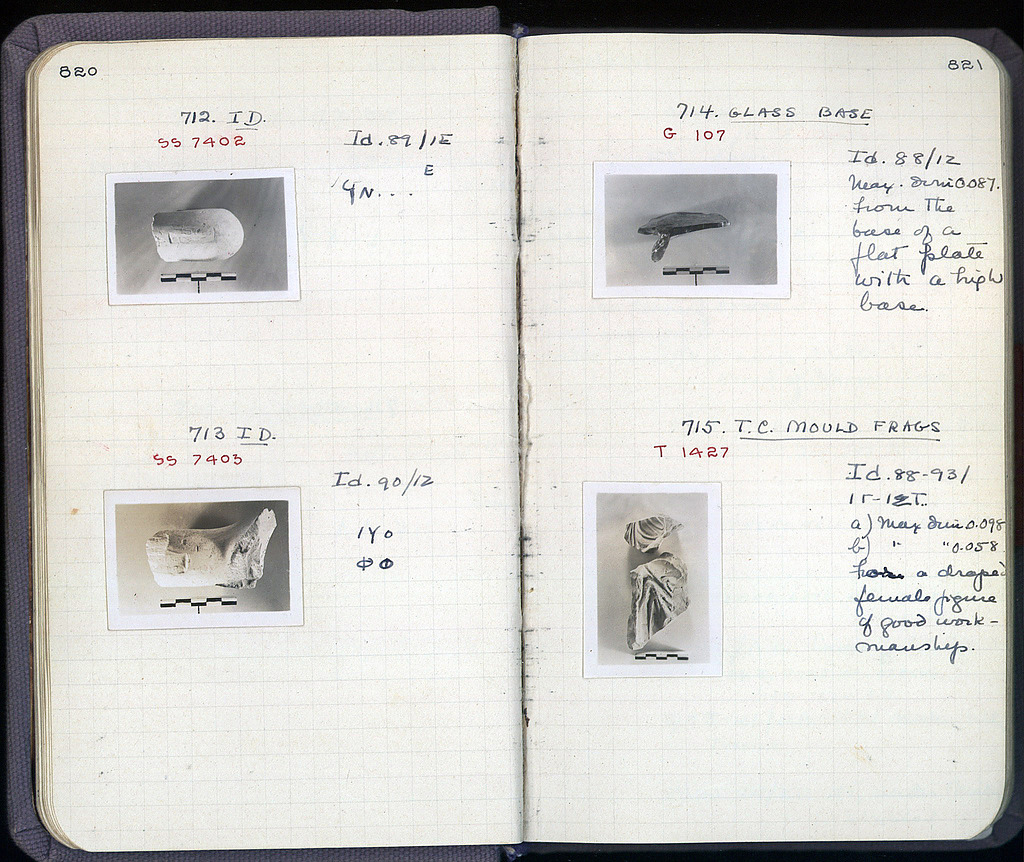 820
712. ID.
SS 7402
Id. 89/1E
E
ΨN....
713 ID.
SS 7403
Id. 90/12
ΙΥΟ
ΦΘ
821
714. GLASS BASE
G 107
Id. 88/12
Max. dim 0.087.
From the
base of a
flat plate
with a high
base.
715. T.C. MOULD FRAGS
T 1427
Id. 88-93/
a) Max dim 0.098
b) " " 0.058
from a draped
female figure
of good work-
manship.